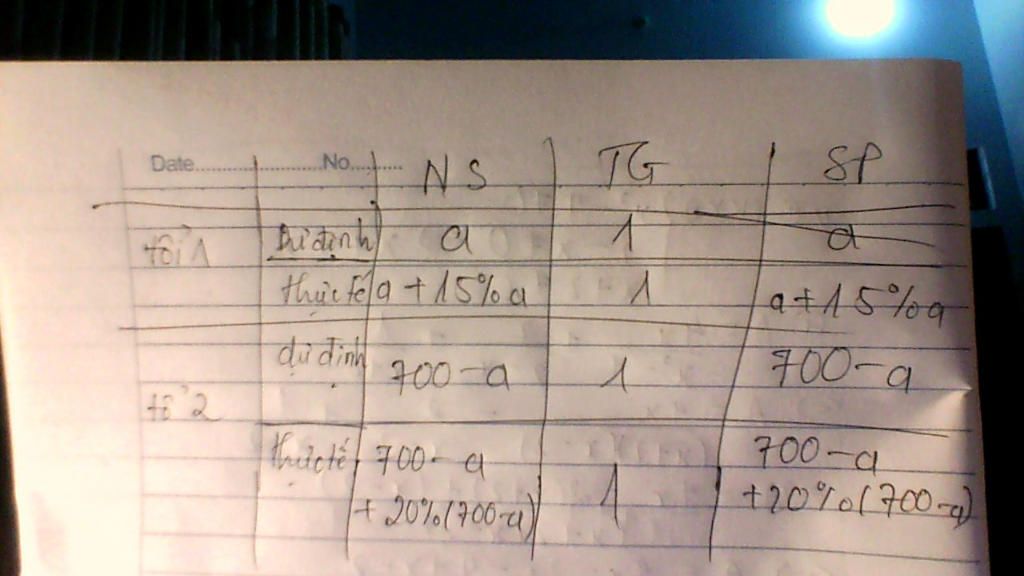 Date............ No.......
NS TG SP
tổ 1 Dự định a 1 a
thực tế a + 15% a 1 a + 15% a
dự định 700 - a 1 700 - a
tổ 2
thực tế 700 - a 1 700 - a
+ 20% (700-a) + 20% (700-a)